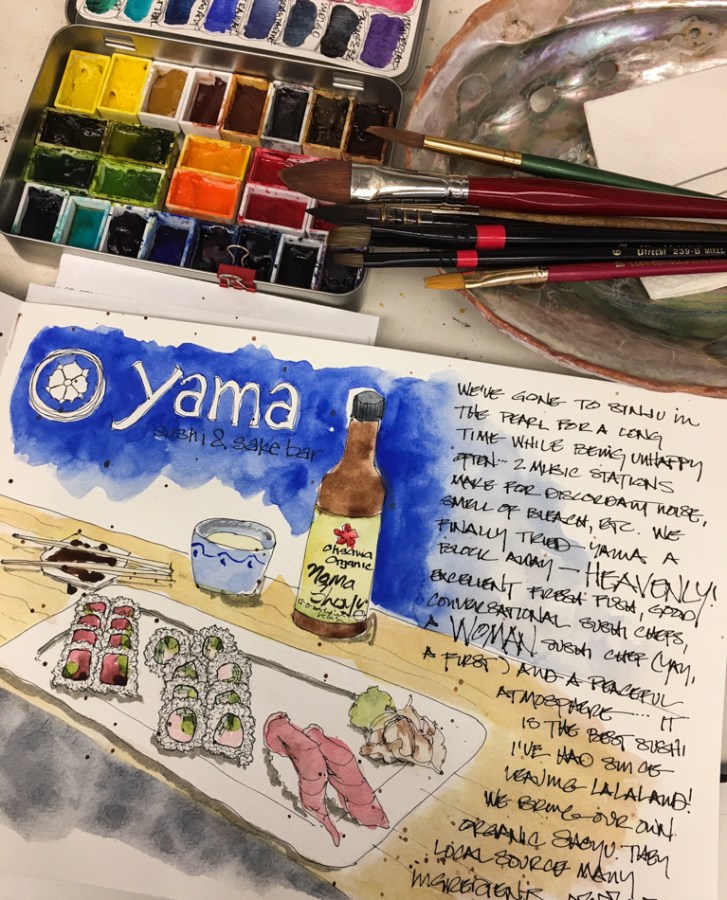 UTRECHT 239-B MIXED
6
yama
sushi & sake bar
Ohsawa
Organic
Nama
Shoyu
WE'VE GONE TO SINJU IN
THE PEARL FOR A LONG
TIME WHILE BEING UNHAPPY
OFTEN - 2 MUSIC STATIONS
MAKE FOR DISCORDANT NOISE,
SMELL OF BLEACH, ETC. WE
FINALLY TRIED YAMA A
BLOCK AWAY - HEAVENLY!
EXCELLENT FRESH FISH, GOOD/
CONVERSATIONAL SUSHI CHEFS,
A WOMAN SUSHI CHEF (YAY,
A FIRST) AND A PEACEFUL
ATMOSPHERE.... IT
IS THE BEST SUSHI
I'VE HAD SINCE
LEAVING LALALAND!
WE BRING OUR OWN
ORGANIC SHOYU. THEY
LOCAL SOURCE MANY
INGREDIENTS